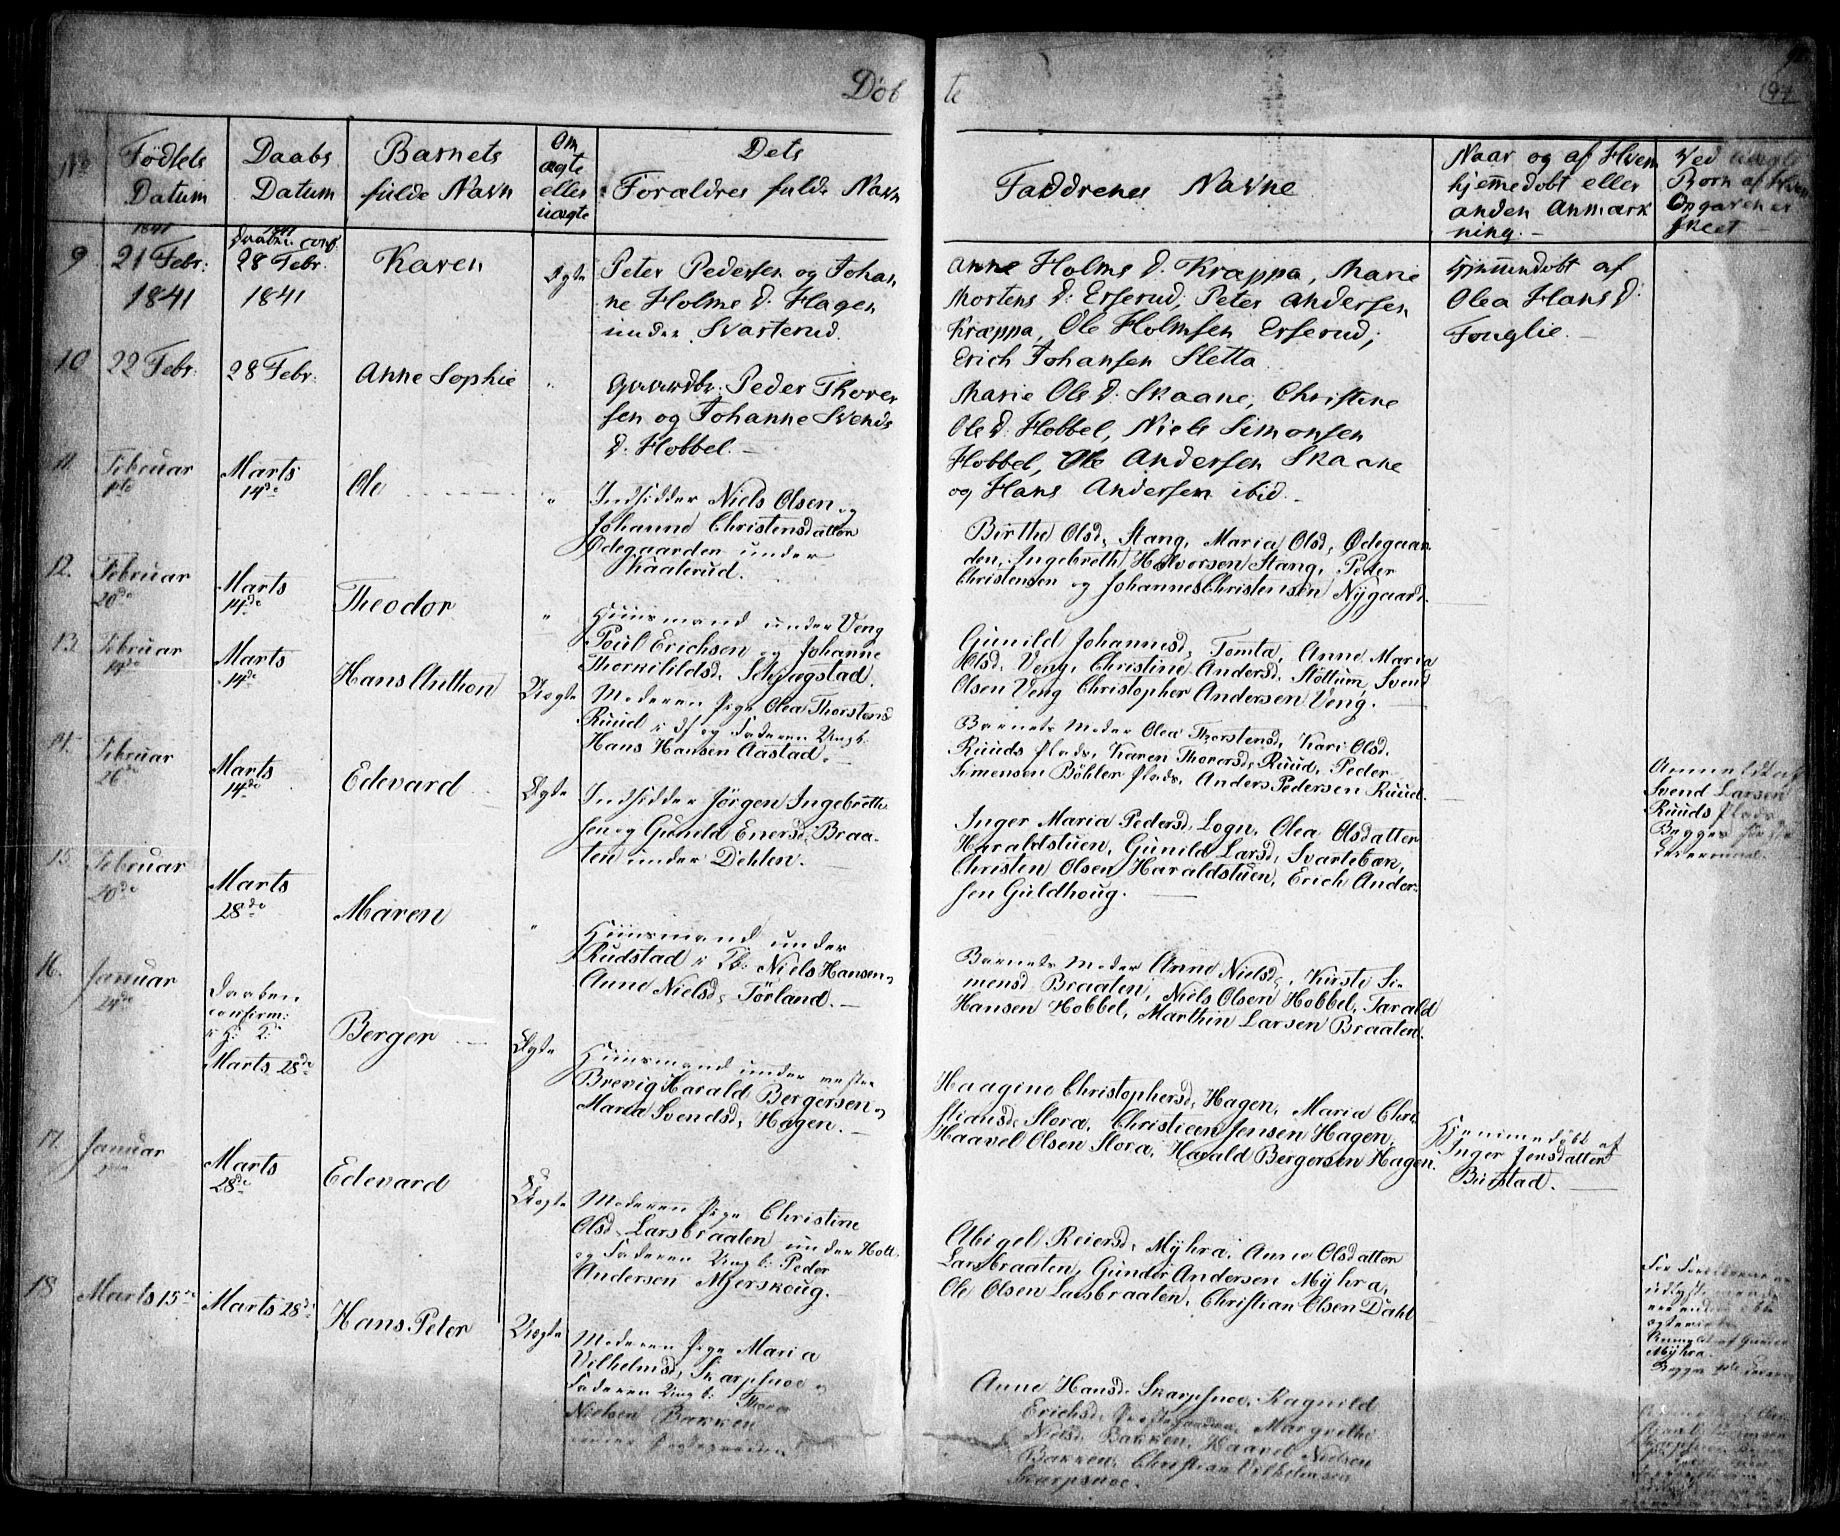 Døbte
94
No
Fødsels Datum
Daabs Datum
Barnets fulde Navn
Om ægte eller uægte
Dets Forældres fulde Navn
Faddrenes Navne
Naar og af Hvem hjemmedøbt eller anden Anmærkning.
Ved uægte Børn af Hvem Opgaven er skeet
9
1841
21 Febr:
1841
1841
Daaben conf.
28 Febr.
1841
Karen
Ægte
Peter Pedersen og Johan
ne Holms D. Hagen
under Svarterud.
Anne Holms D. Krappa, Marie
Mortens D: Erserud, Peter Andersen
Krappa, Ole Holmsen Erserud,
Erich Johansen Sletta
Hjemmedøbt af
Olea Hans D:
Fouglie.
10
22 Febr.
28 Febr.
Anne Sophie
"
Gaardbr. Peder Thorer
sen og Johanne Svends
D. Hobbel.
Marie Ole D: Skaane, Christine
Ole D. Hobbel, Niels Simonsen
Hobbel, Ole Andersen Skaane
og Hans Andersen ibid.
11.
Februar
1ste
Marts
14de
Ole
"
Indsidder Niels Olsen og
Johanne Christensdatter
Ødegaarden under
Kaaterud.
Birthe Olsd, Stang, Maria Olsd, Ødegaar
den, Ingebreth Halvorsen Stang, Peder
Christensen og Johannes Christensen Nygaard.
12.
Februar
20de
Marts
14de
Theodor
"
Huusmand under Veng
Poul Erichsen og Johanne
Thorkilildsd, Schjægstad.
Gunild Johannesd, Tomta, Anne Maria
Olsd, Veng, Christine Andersd, Støttum, Svend
Olsen Veng Christopher Andersen Veng.
13.
Februar
14de
Marts
14de
Hans Anthon
Uægte
Moderen Pige Olea Thorstensd
Ruud i Ds og Faderen Ungk:
Hans Hansen Aastad.
Barnets Moder Olea Thorstensd, Kari Olsd.
Ruuds Plads, Karen Thorersd, Ruud, Peder
Simensen Bøhler Plads, Anders Pedersen Ruud.
Anmeldt af
Svend Larsen
Ruuds Plads,
Begges første
Leiermaal.
14.
Februar
26de
Marts
14de
Edevard
Ægte
Indsidder Jørgen Ingebreth
sen og Gunild Enersd, Braa
ten under Dehlen.
Inger Maria Pedersd, Logn, Olea Olsdatter
Haraldstuen, Gunild Larsd, Svartebæn,
Christen Olsen Haraldstuen, Erich Ander
sen Guldhoug.
15.
Februar
20de
Marts
28de
Maren
"
Huusmand under
Rudstad i Niels Hansen,
Anne Nielsd, Tørland.
Barnets Moder Anne Nielsd, Kirsti Si
mensd Braaten, Niels Olsen Hobbel, Tarald
Hansen Hobbel, Marthin Larsen Braaten.
16.
Januar
24de
Daaben
confirm:
i H: T:
Marts 28de
Berger
Ægte
Huusmand under vestre
Brevig Harald Bergersen,
Maria Svendsd, Hagen.
Haagine Christophersd, Hagen, Maria Chri
stiansd, Slora, Christian Jensen Hagen,
Haavel Olsen Slora, Harald Bergersen Hagen.
Hjemmedøbt af
Inger Jensdatter
Burstad.
17.
Januar
Marts
28de
Edevard
Uægte
Moderen Pige Christine
Olsd, Larsbraaten under Holt.
og Faderen Ungk: Peder
Andersen Mjerskoug.
Abigel Reiersd, Myhra, Anne Olsdatter
Larsbraaten, Gunder Andersen Myhra,
Ole Olsen Larsbraaten, Christian Olsen Dahl
For Forældrene er
Anmeldt af Gunder
Myhra.
Begges 1ste
18
Marts 15de
Marts 28de
Hans Peter
Uægte
Moderen Pige Maria
Vilhelmsd, Skarpsnoe,
Faderen Ungk: Thore
Nielsen Bakken
under Præstegaarden
Anne Hansd, Skarpsnoe, Ragnild
Erichsd, Præstegaarden, Margrethe
Nielsd, Bakken, Haavel Nielsen
Bakken, Christian Vilhelmsen
Skarpsnoe.